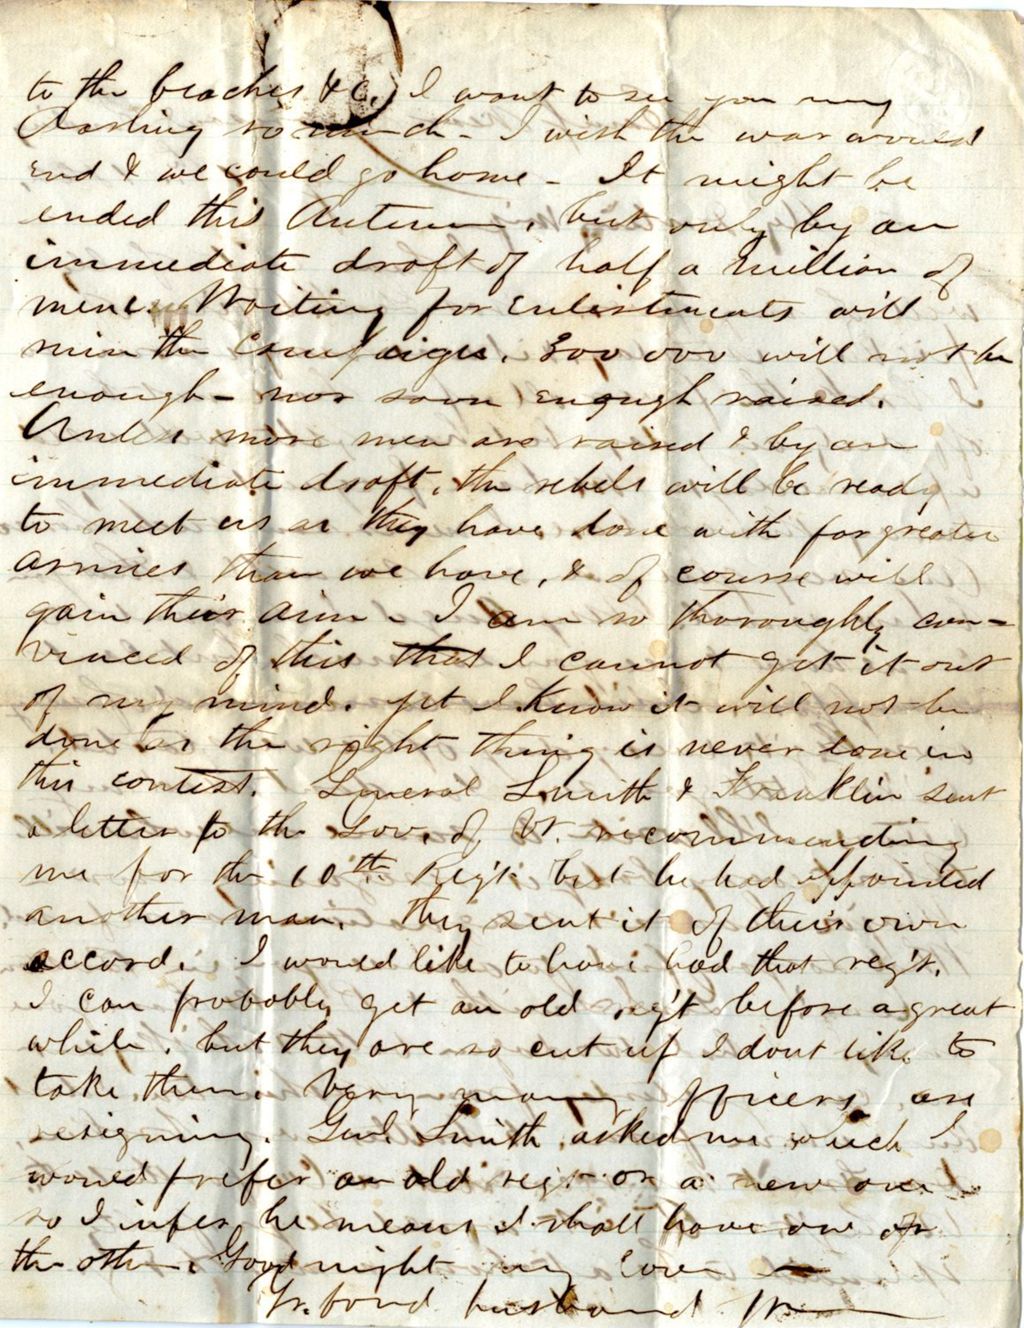 to the beaches &c. I want to see you my
Darling so much - I wish the war would
end & we could go home - It might be
ended this Autumn, but only by an
immediate draft of half a million of
men. Waiting for enlistments will
ruin the Campaign. 300 000 will not be
enough - nor soon enough raised.
Unless more men are raised & by an
immediate draft, the rebels will be ready
to meet us as they have done with far greater
armies than we have, & of course will
gain their aim - I am so thoroughly con=
vinced of this that I cannot get it out
of my mind. yet I know it will not be
done as the right thing is never done in
this contest. General Smith & Franklin sent
a letter to the Gov. of Vt. recommending
me for the 10th Reg't but he had appointed
another man. They sent it of their own
accord. I would like to have had that reg't.
I can probably get an old reg't before a great
while, but they are so cut up I dont like to
take them. Very many officers are
resigning. Genl. Smith asked me which I
would prefer an old regt or a new one
so I infer he means I shall have one or
the other. Good night my Love -
Yr. fond husband